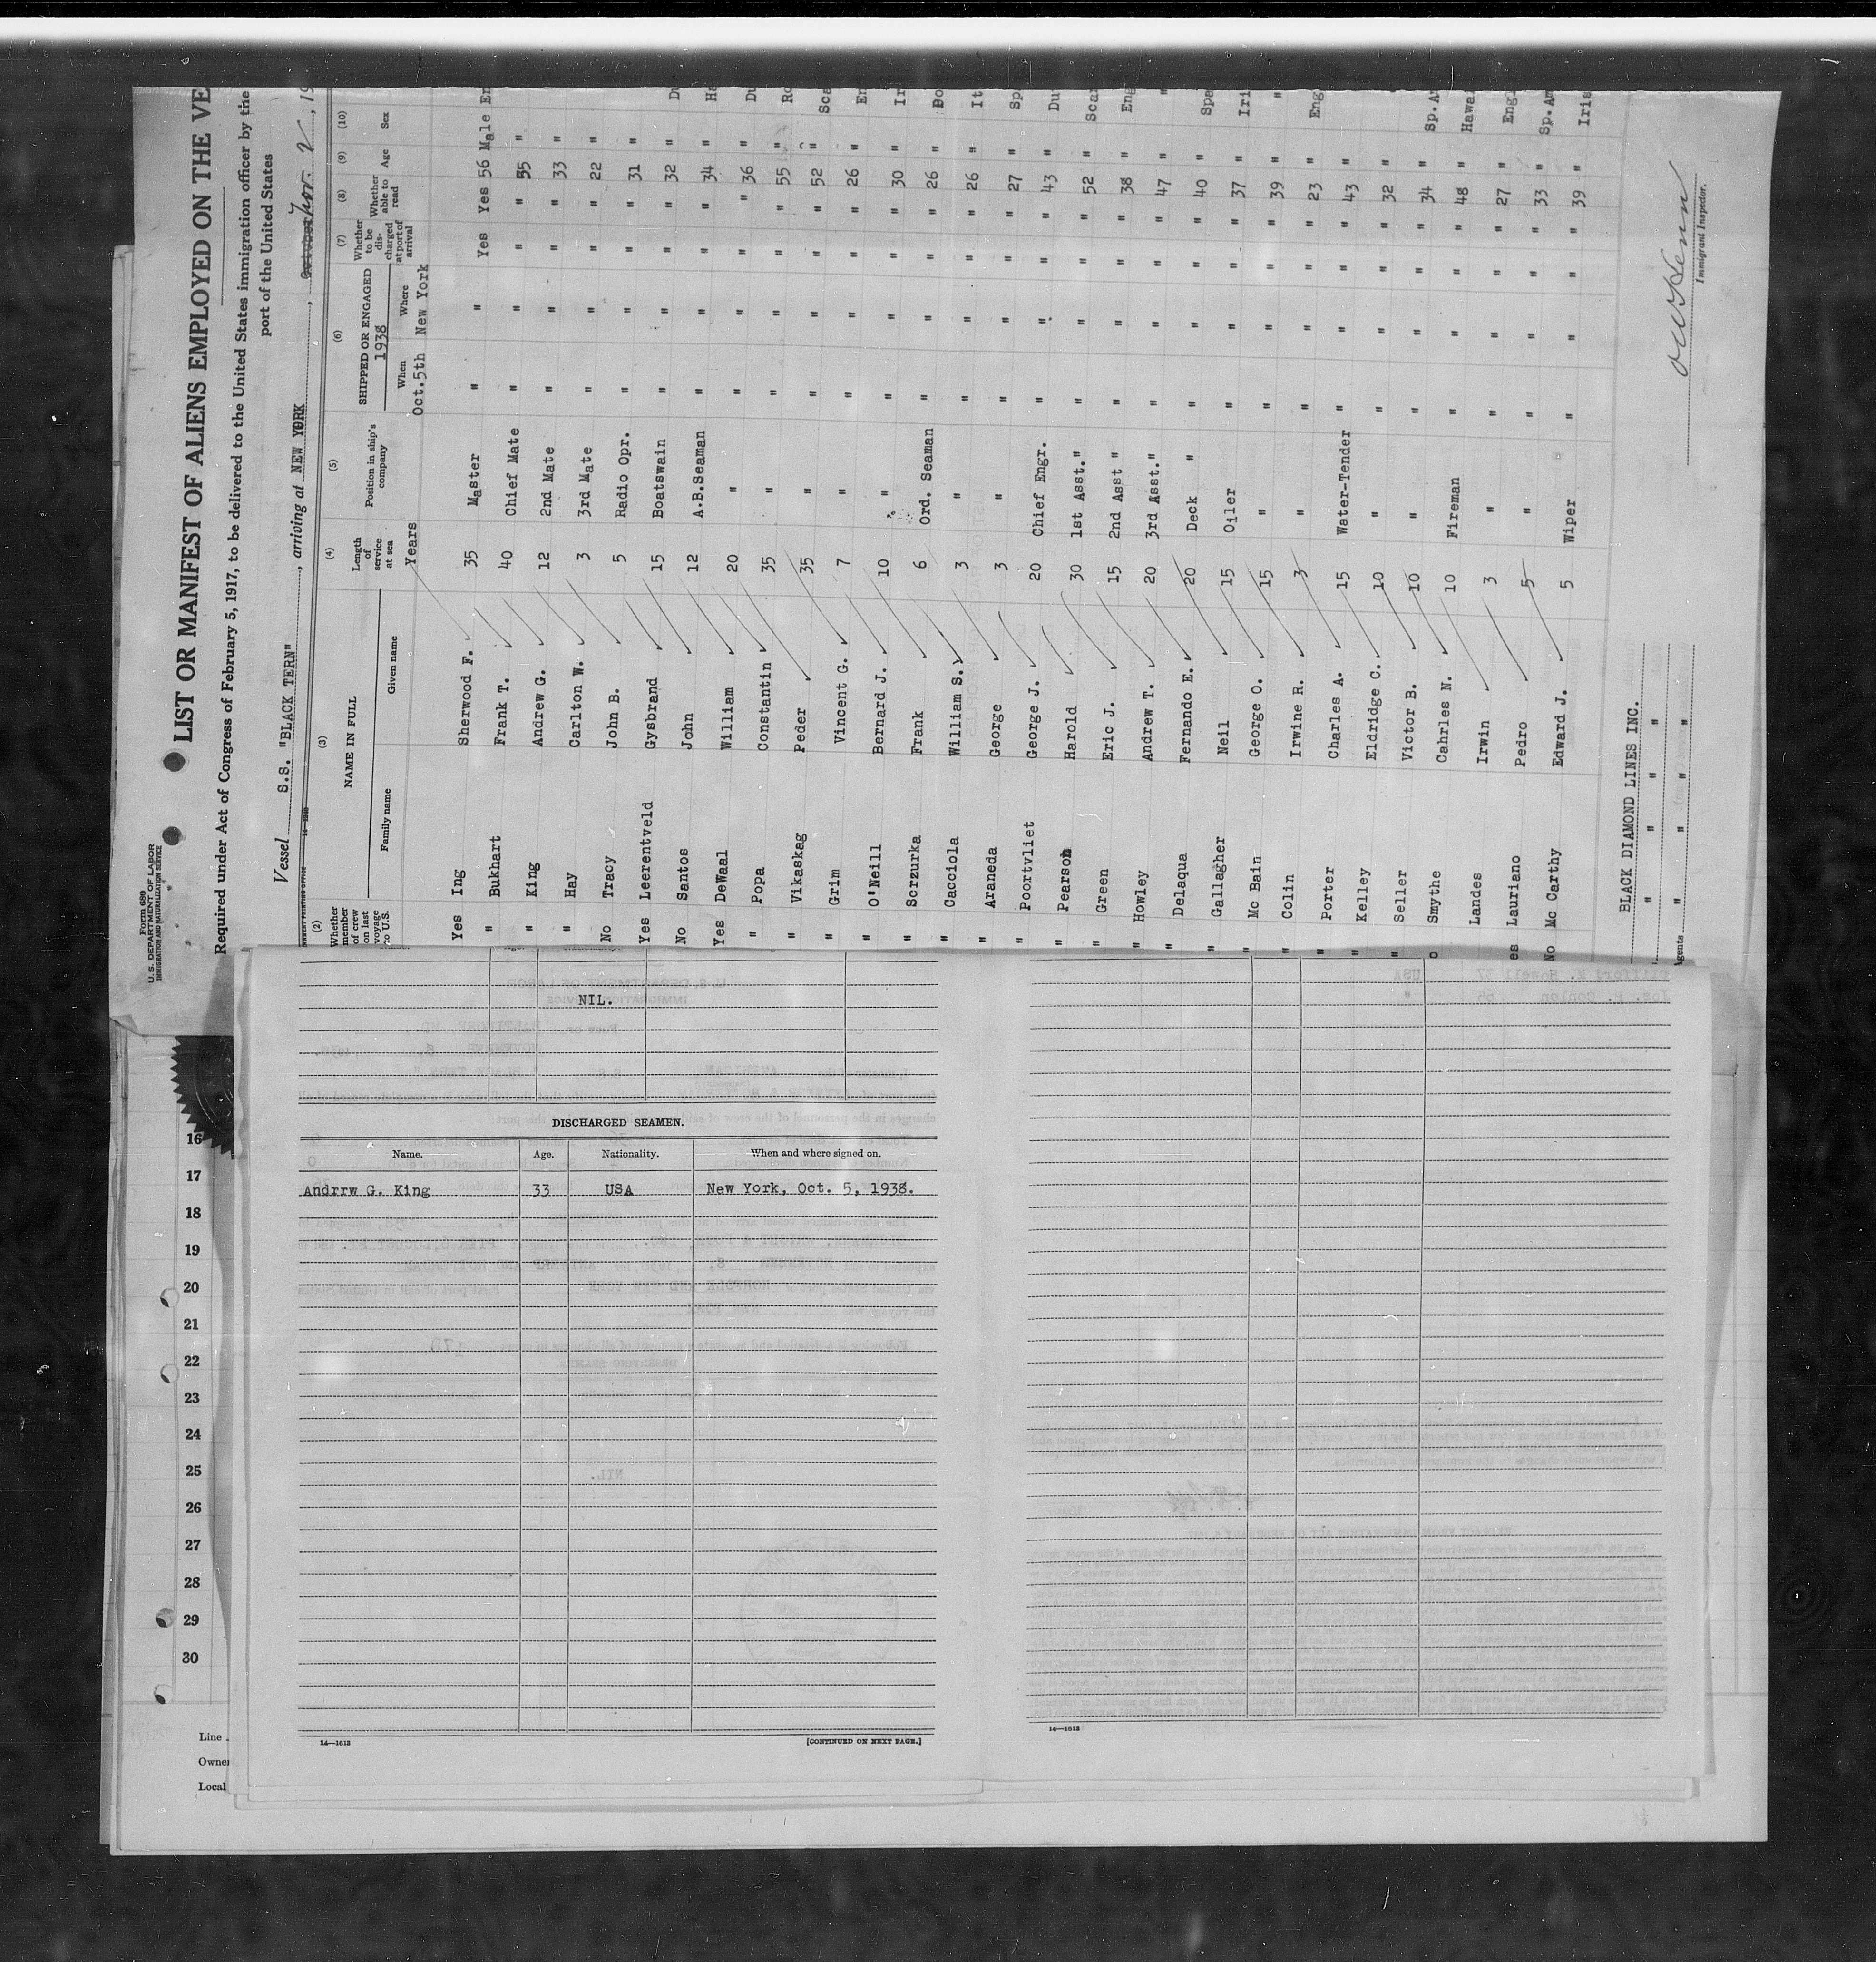 Form 689
U.S. DEPARTMENT OF LABOR
IMMIGRATION AND NATURALIZATION SERVICE
LIST OR MANIFEST OF ALIENS EMPLOYED ON THE VE
Required under Act of Congress of February 5, 1917, to be delivered to the United States immigration officer by the
port of the United States
Vessel S.S. "BLACK TERN", arriving at NEW YORK, Nov. 2, 19
(2) (3) (4) (5) (6) (7) (8) (9) (10)
Whether member of crew on last voyage to U.S. NAME IN FULL Family name Given name Length of service at sea Position in ship's company SHIPPED OR ENGAGED 1938 When Where Whether to be discharged at port of arrival Whether able to read Age Sex
Years Oct.5th New York
Yes Ing Sherwood F. 35 Master " " Yes Yes 56 Male En
" Bukhart Frank T. 40 Chief Mate " " " " 55 "
" King Andrew G. 12 2nd Mate " " " " 33 "
" Hay Carlton W. 3 3rd Mate " " " " 22 "
No Tracy John B. 5 Radio Opr. " " " " 31 "
Yes Leerentveld Gysbrand 15 Boatswain " " " " 32 " Du
No Santos John 12 A.B.Seaman " " " " 34 " Ha
Yes DeWaal William 20 " " " " " 36 " Du
" Popa Constantin 35 " " " " " 55 " Ro
" Vikaskag Peder 35 " " " " " 52 " Sca
" Grim Vincent G. 7 " " " " " 26 " En
" O'Neill Bernard J. 10 " " " " " 30 " Ir
" Scrzurka Frank 6 Ord. Seaman " " " " 26 " Po
" Cacciola William S. 3 " " " " " 26 " It
" Araneda George 3 " " " " " 27 " Sp
" Poortvliet George J. 20 Chief Engr. " " " " 43 " Du
" Pearson Harold 30 1st Asst." " " " " 52 " Scan
" Green Eric J. 15 2nd Asst " " " " " 38 " Eng
" Howley Andrew T. 20 3rd Asst." " " " " 47 " "
" Delaqua Fernando E. 20 Deck " " " " " 40 " Spa
" Gallagher Neil 15 Oiler " " " " 37 " Iri
" Mc Bain George O. 15 " " " " " 39 " "
" Colin Irwine R. 3 " " " " " 23 " Eng
" Porter Charles A. 15 Water-Tender " " " " 43 "
" Kelley Eldridge C. 10 " " " " " 32 "
" Seller Victor B. 10 " " " " " 34 " Sp.Am
o Smythe Cahrles N. 10 Fireman " " " " 48 " Hawa
Landes Irwin 3 " " " " " 27 " Engl
es Lauriano Pedro 5 " " " " " 33 " Sp.Am
No Mc Carthy Edward J. 5 Wiper " " " " 39 " Iris
BLACK DIAMOND LINES INC.
" " " "
Agents " " " "
Immigrant Inspector.
NIL.
DISCHARGED SEAMEN.
Name. Age. Nationality. When and where signed on.
Andrrw G. King 33 USA New York, Oct. 5, 1938.
14—1613 [CONTINUED ON NEXT PAGE.]
14—1613
16
17
18
19
20
21
22
23
24
25
26
27
28
29
30
Line
Owner
Local